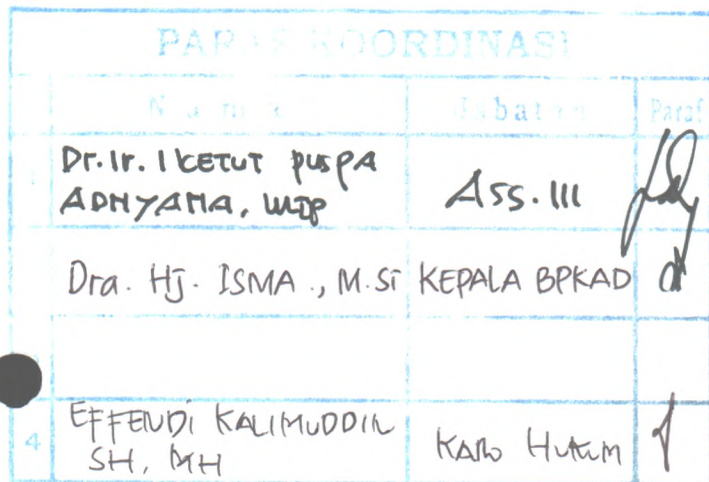 PARAF KOORDINASI
Nama Jabatan Paraf
Dr. Ir. I KETUT PUSPA
ADNYANA, MTP Ass. III
Dra. Hj. ISMA., M.Si KEPALA BPKAD
EFFENDI KALIMUDDIN
4 SH, MH KARO HUKUM